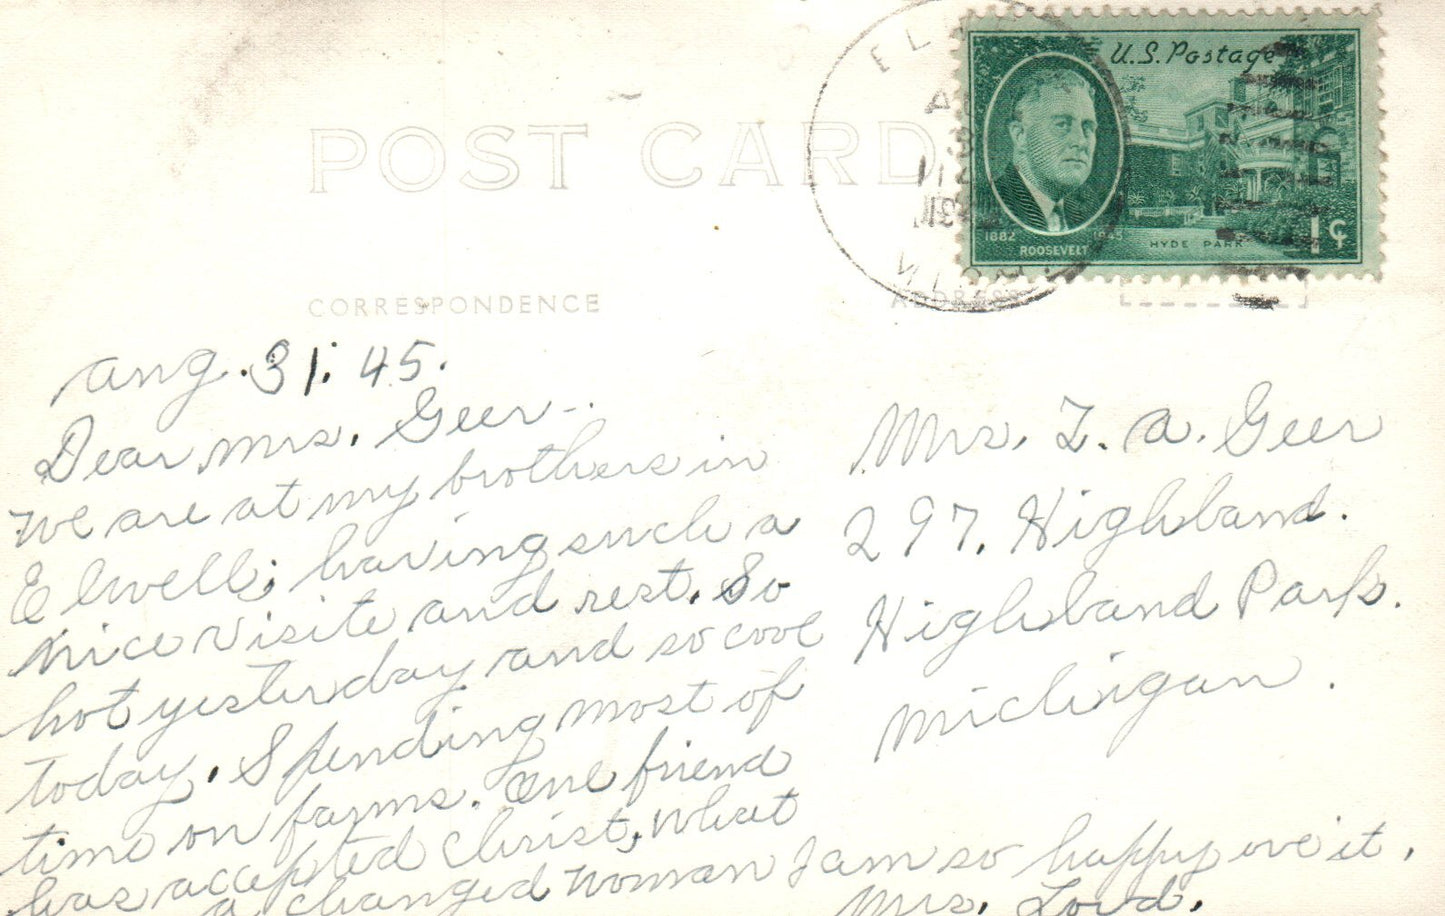 U.S. Postage
1882
1945
ROOSEVELT
HYDE PARK
1¢
POST CARD
CORRESPONDENCE
ADDRESS
Aug. 31. 45.
Dear Mrs. Geer-.
We are at my brothers in
Elwell; having such a
nice visite and rest. So
hot yesterday and so cool
today. Spending most of
time on farms. One friend
has accepted Christ, What
a changed woman I am so happy ove it.
Mrs. Lord.
Mrs. I. A. Geer
297. Highland.
Highland Park.
Michigan.